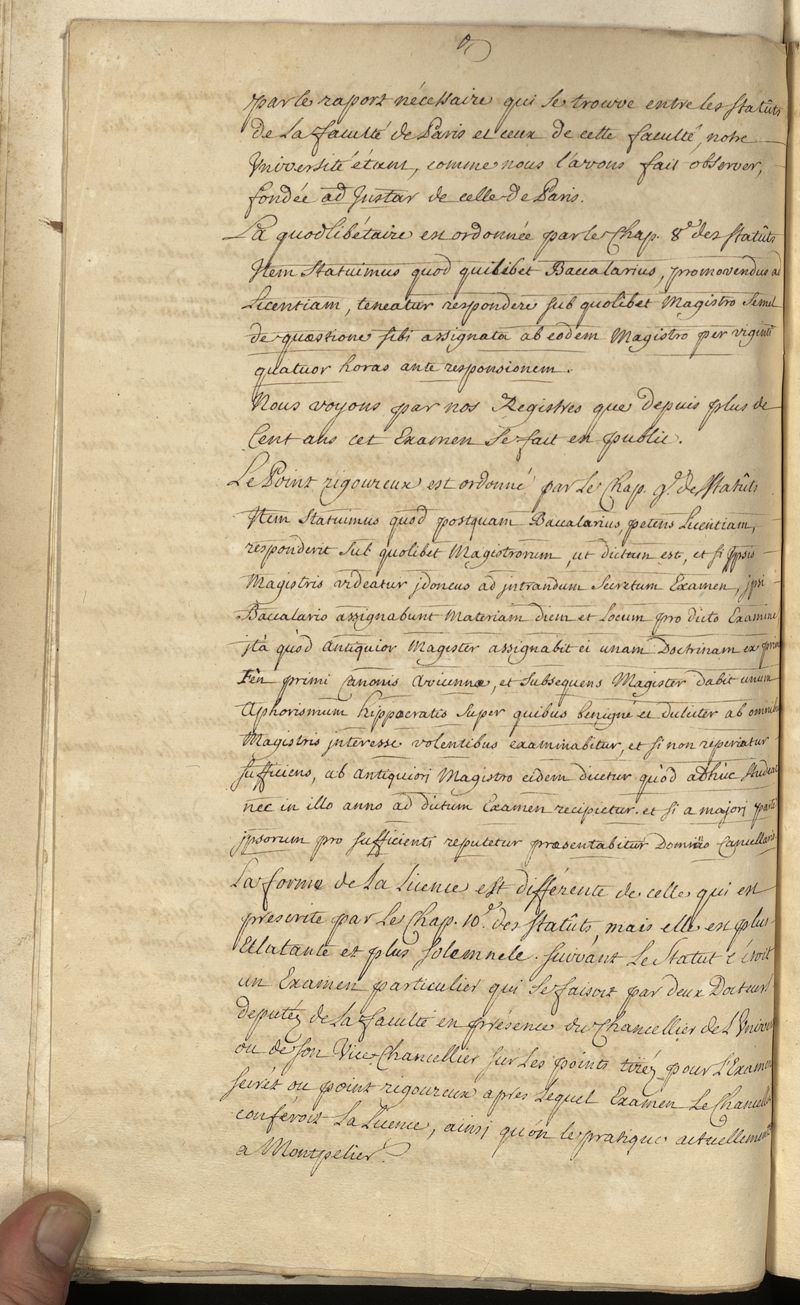 par le raport nécessaire qui se trouve entre les statûts
de la faculté de Paris et ceux de cette faculté, notre
Université étant, comme nous l'avons fait observer,
fondée ad Justar de celle de Paris.
La quodlibétaire en ordonnée par le Chap. 8.e des statûts
Item Statuimus quod quilibet Baccalarius, promovendus ad
Licentiam, teneatur respondere sub quolibet Magistro Semel
de quæstione sibi assignata ab eodem Magistro per viginti
quatuor horas ante responsionem.
Nous voyons par nos Registres que depuis plus de
Cent ans cet Examen se fait en public.
Le Point rigoureux est ordonné par le Chap. 9.e des Statûts
Item Statuimus quod postquam Baccalarius, petens Licentiam,
responderit Sub quolibet Magistrorum, ut dictum est, et si jpsis
Magistris videatur jdoneus ad jntrandum Secretum Examen, jpsi
Baccalario assignabunt Materiam diem et Locum pro dicto Examine
jta quòd Antiquior Magister assignabit ei unam Doctrinam ex prima
Fén primi Canonis Avicennæ, et Subsequens Magister dabit unum
Aphorismum hippocratis Super quibus benigne et dulciter ab omnibus
Magistris jnteresse volentibus examinabitur, et si non reperiatur
sufficiens, ab Antiquiori Magistro eidem dicetur quòd adhuc studeat
nec in illo anno ad dictum Examen recipietur. et si a majori parte
jpsorum pro sufficienti reputetur præsentabitur Domino Cancellario
La forme de la Licence est différente de celle qui en
prescrite par le Chap. 10.e des statûts, mais elle en plus
Eclatante et plus Solemnele. suivant le Statut c'étoit
un Examen particulier qui se faisoit par deux Docteurs
deputéz de la faculté en présence du Chancellier de L'Univer
ou de son Vice-Chancellier sur les points tiréz pour L'Examen
secrét ou point rigoureux apres Lequel Examen Le Chancell
conféroit la Licence, ainsi qu'on le pratique actuellement
a Montpelier.